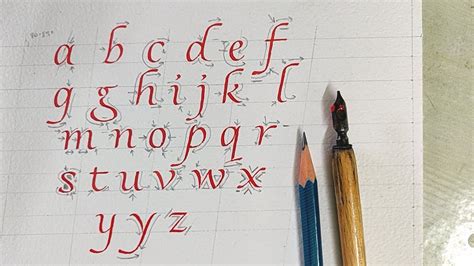 a b c d e f
g g h i j k l
m n o p q r
s t u v w x
y y z